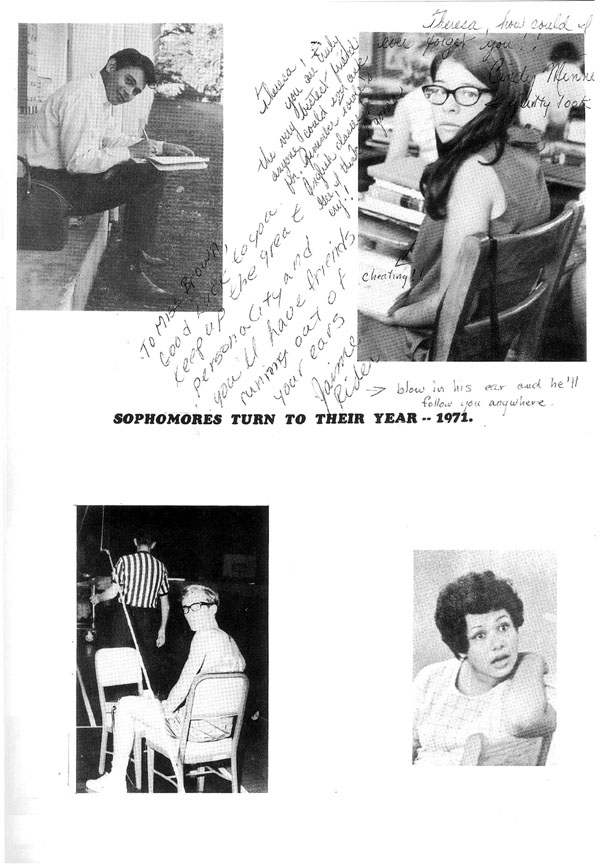 Theresa, how could I
ever forget you!!
Cindy Minne
Theresa!
you are truly
the very
anyone could ever ask
for. Remember
English classes
To Miss Brown!
Good luck to you.
Keep up the great
personality and
you'll have friends
running out of
your ears
Jaime
Rider
cheating!!
→ blow in his ear and he'll
follow you anywhere.
SOPHOMORES TURN TO THEIR YEAR -- 1971.